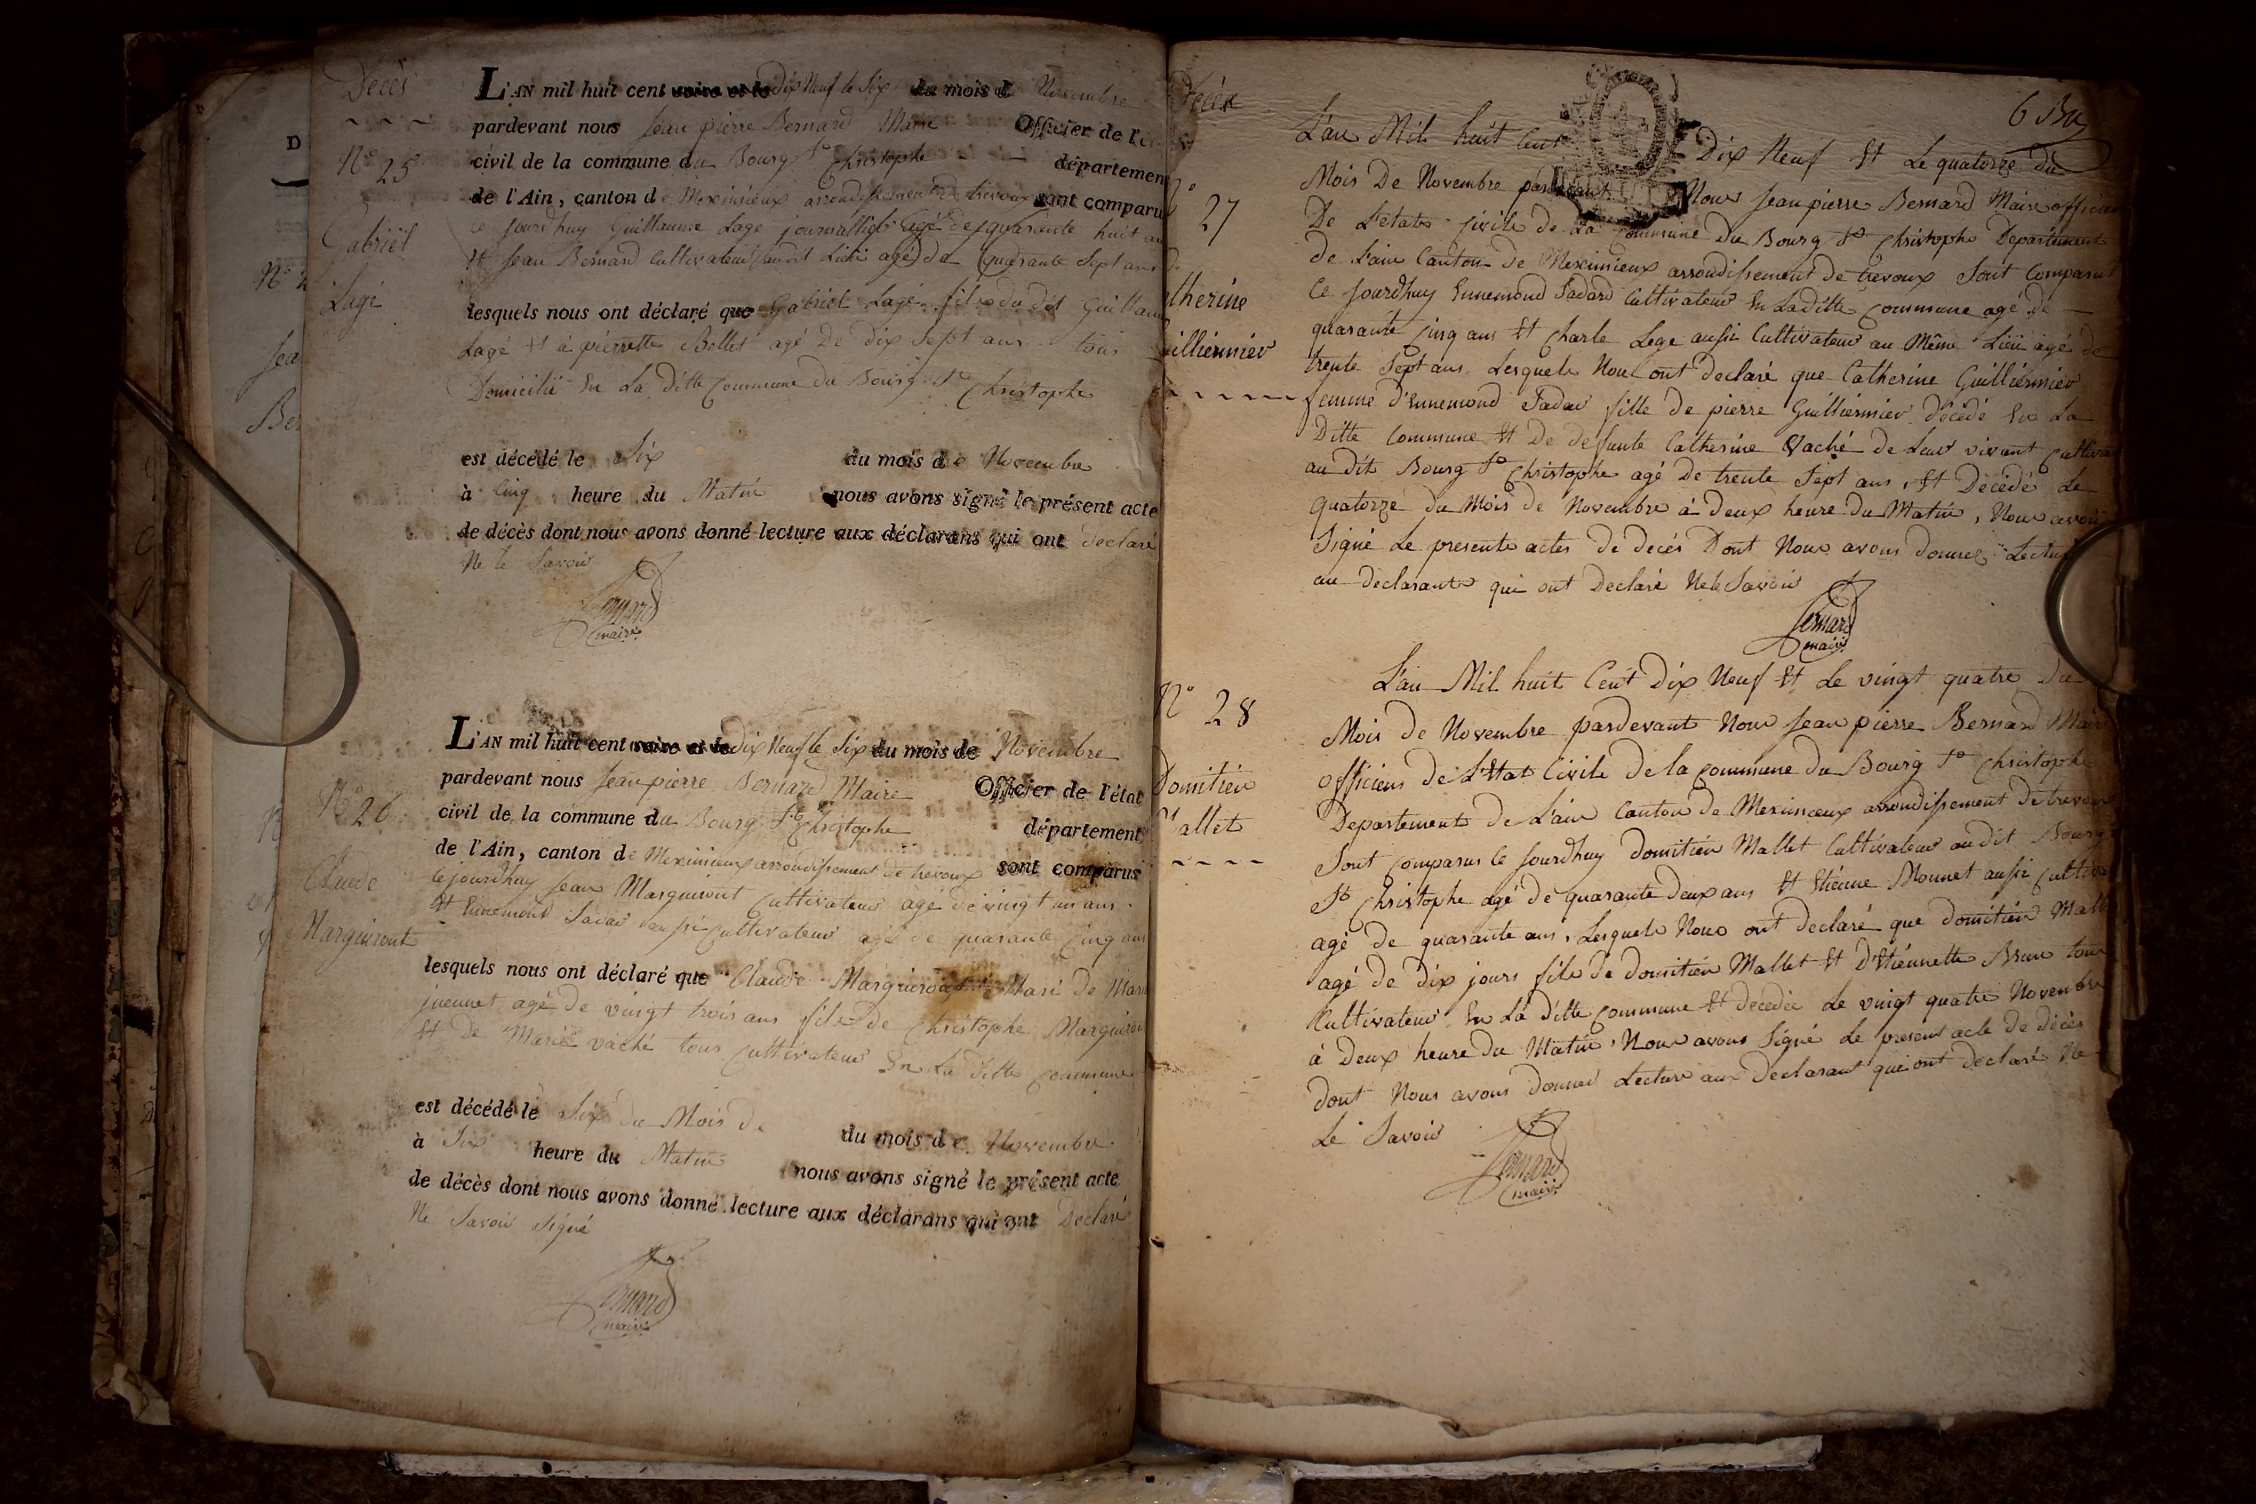 Décès
N° 25
Gabriel
Lagé
L'AN mil huit cent dix Neuf le Six du mois d Novembre
pardevant nous Jean pierre Bernard Maire Officier de l'
civil de la commune du Bourg St Christophe département
de l'Ain, canton de Meximieux arrondissement de trevoux sont comparu
ce Jourdhuy Guillaume Lagé journallier agé de quarante huit an
Et Jean Bernard Cultivateur audit Lieu agé de Quarante Sept ans
lesquels nous ont déclaré que Gabriel Lagé fils du dit Guillau
Lagé et à pierrette Bollet agé De Dix Sept ans tous
Domicilié En La Ditte Commune du Bourg St Christophe
est décédé le Six du mois de Novembre
à Cinq heure du Matin nous avons signé le présent acte
de décès dont nous avons donné lecture aux déclarans qui ont déclaré
Ne le Savoir
Bernard
maire
N° 26
Claude
Marguiront
L'AN mil huit cent dix Neuf le Six du mois de Novembre
pardevant nous Jean pierre Bernard Maire Officier de l'état
civil de la commune du Bourg St Christophe département
de l'Ain, canton de Meximieux arrondissement de trevoux sont comparus
ce jourdhuy Jean Marguiront Cultivateur agé de vingt un ans
Et Ennemond aussi Cultivateur agé de quarante Cinq ans
lesquels nous ont déclaré que Claude Marguiront Mari de Mari
juennet agé De vingt trois ans fils de Christophe Marguiron
Et De Marie vaché tous Cultivateur En La Ditte Commune
est décédé le Six du Mois de du mois de Novembre
à Six heure du Matin nous avons signé le présent acte
de décès dont nous avons donné lecture aux déclarans qui ont Declaré
Ne Savoir Signé
Bernard
maire
Décès
N° 27
therine
uilliermier
L'an Mil huit Cent Dix Neuf Et Le quatorze du
Mois De Novembre pardevant Nous Jean pierre Bernard Maire officier
De L'etat Civile de La Commune Du Bourg St Christophe Departement
de L'ain Canton de Meximieux arrondissement de trevoux Sont Comparut
Ce Jourdhuy Ennemond Jadard Cultivateur En Laditte Commune agé de
quarante Cinq ans Et Charle Lege aussi Cultivateur au Même Lieu agé de
trente Sept ans Lesquels Nou ont declaré que Catherine Guilliermier
femme D'Ennemond Jadar fille de pierre Guilliermier Décédé En La
Ditte Commune Et De defunte Catherine Vaché de Leur vivant Cultiva
au dit Bourg St Christophe agé De trente Sept ans, Et Décédé Le
Quatorze du Mois de Novembre à Deux heure du Matin, Nous avons
Signé Le presente actes De decés Dont Nous avons donnés Lectur
au Declarants qui ont Declaré Ne le Savoir
Bernard
maire
N° 28
Domitien
Mallet
L'an Mil huit Cent Dix Neuf Et Le vingt quatre Du
Mois de Novembre pardevant Nous Jean pierre Bernard Mair
officiers De L'Etat Civile de la Commune du Bourg St Christophe
Departement De L'ain Canton de Meximieux arrondissement De trevoux
Sont Comparus Ce Jourdhuy Domitien Mallet Cultivateur audit Bourg
St Christophe agé de quarante Deux ans Et Etienne Monnet aussi Cultiva
agé de quarante ans, Lesquels Nous ont declaré que Domitien Mall
agé de Dix jours fils de Domitien Mallet Et D'Etiennette Brun tous
Cultivateur En La ditte Commune Et decedée Le vingt quatre Novembre
à Deux heure Du Matin, Nous avons Signé Le present acte De décès
dont Nous avons donnés Lecture aux Declarant qui ont declaré Ne
Le Savoir
Bernard
maire